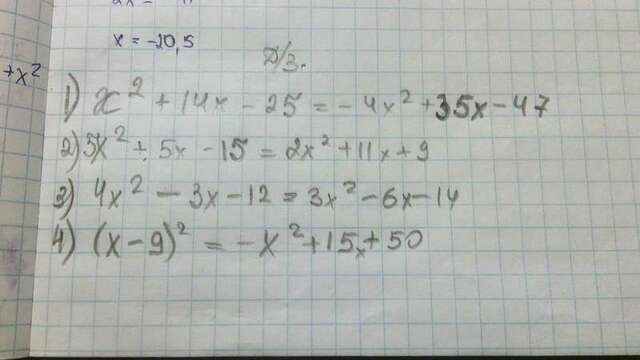 x = -20,5
Д/З.
+x²
1) x² + 14x - 25 = -4x² + 35x - 47
2) 3x² + 5x - 15 = 2x² + 11x + 9
3) 4x² - 3x - 12 = 3x² - 6x - 14
4) (x - 9)² = -x² + 15x + 50